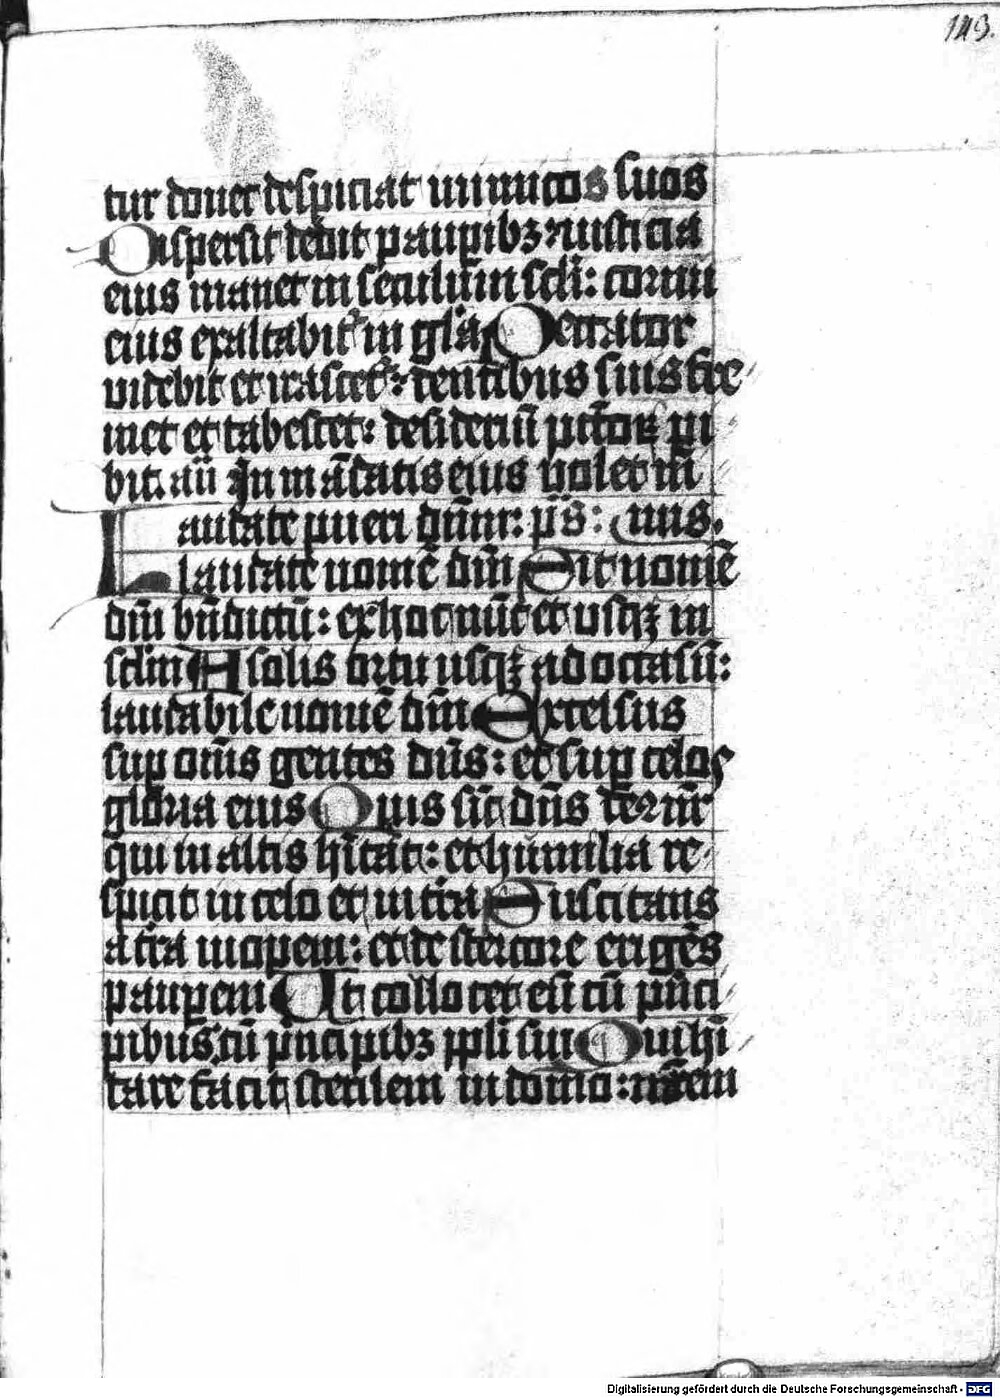 143.
tur donec despiciat inimicos suos
Dispersit dedit paupibꝫ: iusticia
eius manet in seculum scli: cornu
eius exaltabit᷑ in gl̄a Peccator
uidebit et irascet᷑: dentibus suis fre
met et tabescet: desideriū pctōꝝ pi
bit. añ In mādatis eius uolet nī
Laudate pueri dnm: ps:
Laudate nomē dm̄ Sit nomē
dm̄ bn̄dictū: ex hoc nūc et usqꝫ in
sclm A solis ortu usqꝫ ad occasū:
laudabile nomē dm̄ Excelsus
sup om̄s gentes dn̄s: et sup celos
gloria eius Quis sic dn̄s de nr̄
qui in altis hītat: et humilia re
spicit in celo et in tr̄a Suscitans
a tr̄a inopem: et de stercore erigēs
pauperem Ut collocet eū cū pnci
pibus: cū pncipibꝫ ppli sui Qui hi
tare facit sterilem in domo: mr̄em
Digitalisierung gefördert durch die Deutsche Forschungsgemeinschaft - DFG